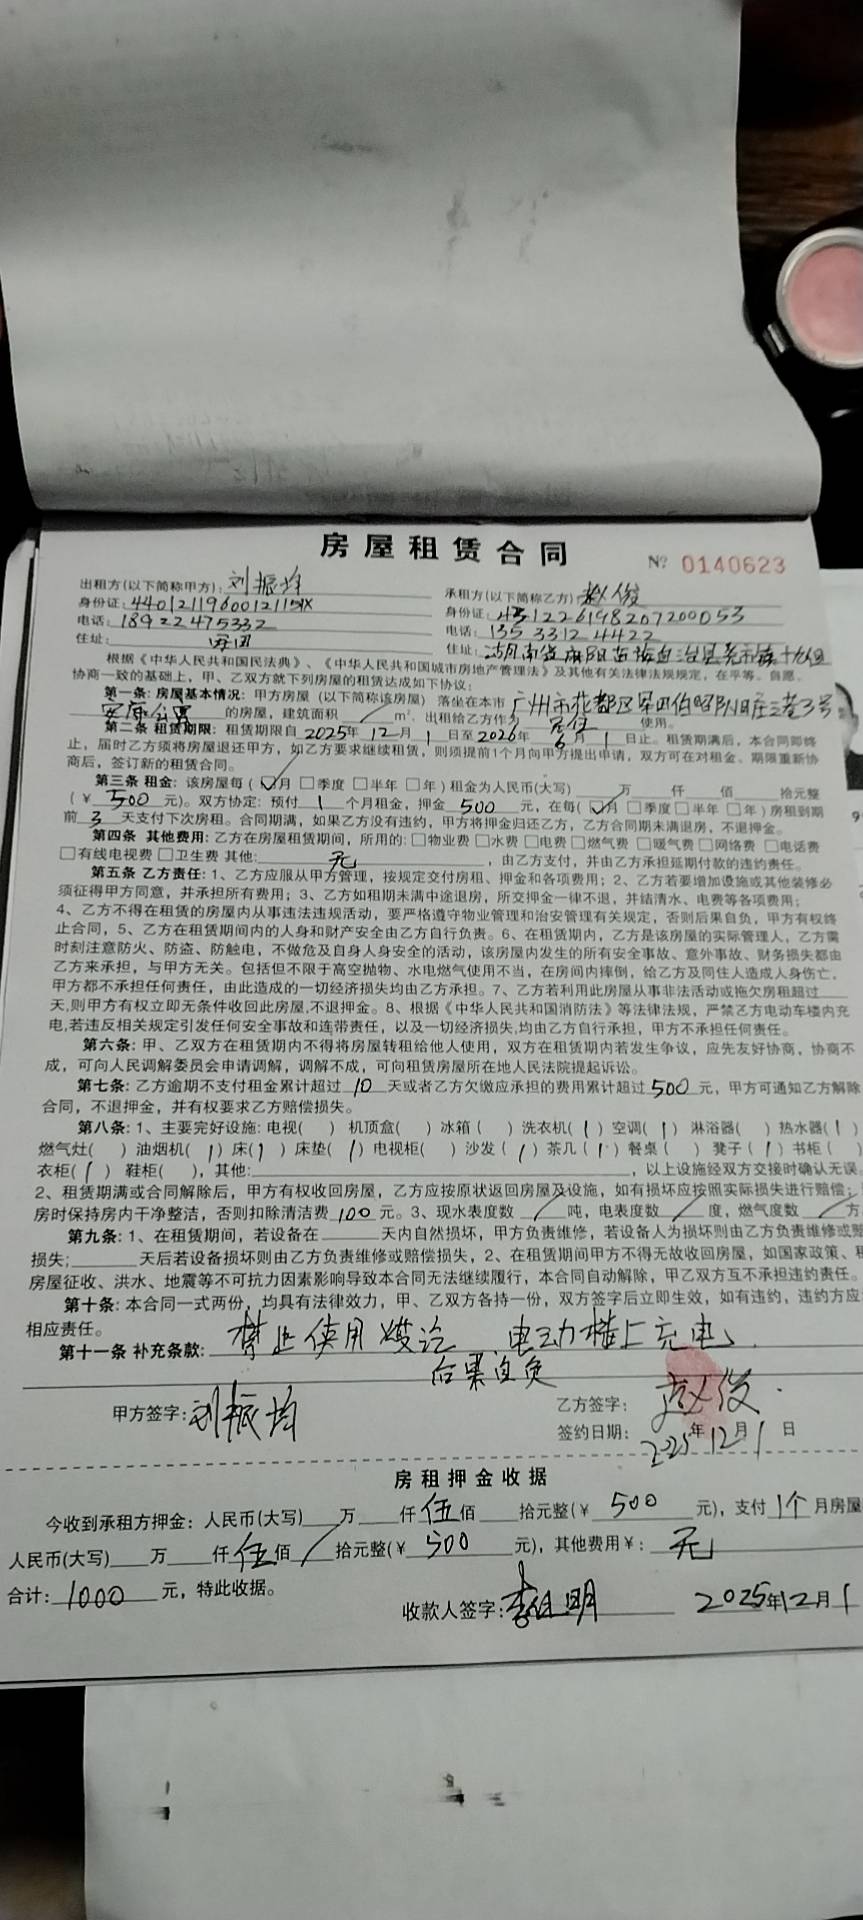 房屋租赁合同
№ 0140623
出租方(以下简称甲方): 刘振均
身份证:
电话: 18922475332
住址:
承租方(以下简称乙方) 赵俊
身份证: 431226198207200053
电话: 13533124422
住址: 湖南省麻阳苗族自治县尧市镇
根据《中华人民共和国民法典》、《中华人民共和国城市房地产管理法》及其他有关法律法规规定，在平等、自愿、
协商一致的基础上，甲、乙双方就下列房屋的租赁达成如下协议：
第一条: 房屋基本情况: 甲方房屋（以下简称该房屋）落坐在本市 广州市花都区 庄三巷3号
的房屋，建筑面积 m²，出租给乙方作为 居住 使用。
第二条 租赁期限: 租赁期限自 2025 年 12 月 1 日至 2026 年 6 月 1 日止。租赁期满后，本合同即终
止，届时乙方须将房屋退还甲方，如乙方要求继续租赁，则须提前1个月向甲方提出申请，双方可在对租金、期限重新协
商后，签订新的租赁合同。
第三条 租金: 该房屋每 ( ☑月 □季度 □半年 □年 ) 租金为人民币(大写) 万 仟 佰 拾元整
(￥ 500 元)。双方协定: 预付 1 个月租金，押金 500 元，在每( ☑月 □季度 □半年 □年 ) 房租到期
前 3 天支付下次房租。合同期满，如果乙方没有违约，甲方将押金归还乙方，乙方合同期未满退房，不退押金。
第四条 其他费用: 乙方在房屋租赁期间，所用的: □物业费 □水费 □电费 □燃气费 □暖气费 □网络费 □电话费
□有线电视费 □卫生费 其他: 无 ，由乙方支付，并由乙方承担延期付款的违约责任。
第五条 乙方责任: 1、乙方应服从甲方管理，按规定交付房租、押金和各项费用；2、乙方若要增加设施或其他装修必
须征得甲方同意，并承担所有费用；3、乙方如租期未满中途退房，所交押金一律不退，并结清水、电费等各项费用；
4、乙方不得在租赁的房屋内从事违法违规活动，要严格遵守物业管理和治安管理有关规定，否则后果自负，甲方有权终
止合同，5、乙方在租赁期间内的人身和财产安全由乙方自行负责。6、在租赁期内，乙方是该房屋的实际管理人，乙方需
时刻注意防火、防盗、防触电，不做危及自身人身安全的活动，该房屋内发生的所有安全事故、意外事故、财务损失都由
乙方来承担，与甲方无关。包括但不限于高空抛物、水电燃气使用不当，在房间内摔倒，给乙方及同住人造成人身伤亡，
甲方都不承担任何责任，由此造成的一切经济损失均由乙方承担。7、乙方若利用此房屋从事非法活动或拖欠房租超过
天,则甲方有权立即无条件收回此房屋,不退押金。8、根据《中华人民共和国消防法》等法律法规，严禁乙方电动车楼内充
电,若违反相关规定引发任何安全事故和连带责任，以及一切经济损失,均由乙方自行承担，甲方不承担任何责任。
第六条: 甲、乙双方在租赁期内不得将房屋转租给他人使用，双方在租赁期内若发生争议，应先友好协商，协商不
成，可向人民调解委员会申请调解，调解不成，可向租赁房屋所在地人民法院提起诉讼。
第七条: 乙方逾期不支付租金累计超过 10 天或者乙方欠缴应承担的费用累计超过 500 元，甲方可通知乙方解除
合同，不退押金，并有权要求乙方赔偿损失。
第八条: 1、主要完好设施: 电视( ) 机顶盒( ) 冰箱( ) 洗衣机( 1 ) 空调( 1 ) 淋浴器( ) 热水器( 1 )
燃气灶( ) 油烟机( 1 ) 床( 1 ) 床垫( 1 ) 电视柜( ) 沙发( 1 ) 茶几( 1 ) 餐桌( ) 凳子( 1 ) 书柜( )
衣柜( 1 ) 鞋柜( )，其他: ，以上设施经双方交接时确认无误。
2、租赁期满或合同解除后，甲方有权收回房屋，乙方应按原状返回房屋及设施，如有损坏应按照实际损失进行赔偿；
房时保持房内干净整洁，否则扣除清洁费 100 元。3、现水表度数 吨，电表度数 度，燃气度数 方
第九条: 1、在租赁期间，若设备在 天内自然损坏，甲方负责维修，若设备人为损坏则由乙方负责维修或赔
损失; 天后若设备损坏则由乙方负责维修或赔偿损失，2、在租赁期间甲方不得无故收回房屋，如国家政策、
房屋征收、洪水、地震等不可抗力因素影响导致本合同无法继续履行，本合同自动解除，甲乙双方互不承担违约责任。
第十条: 本合同一式两份，均具有法律效力，甲、乙双方各持一份，双方签字后立即生效，如有违约，违约方应
相应责任。
第十一条 补充条款: 禁止使用 电动 楼上充电
后果自负
甲方签字: 刘振均
乙方签字: 赵俊
签约日期: 2025 年 12 月 1 日
房租押金收据
今收到承租方押金: 人民币(大写) 万 仟 伍 佰 拾元整(￥ 500 元)，支付 1个 月房屋
人民币(大写) 万 仟 伍 佰 拾元整(￥ 500 元)，其他费用￥: 无
合计: 1000 元，特此收据。
收款人签字: 2025年12月1